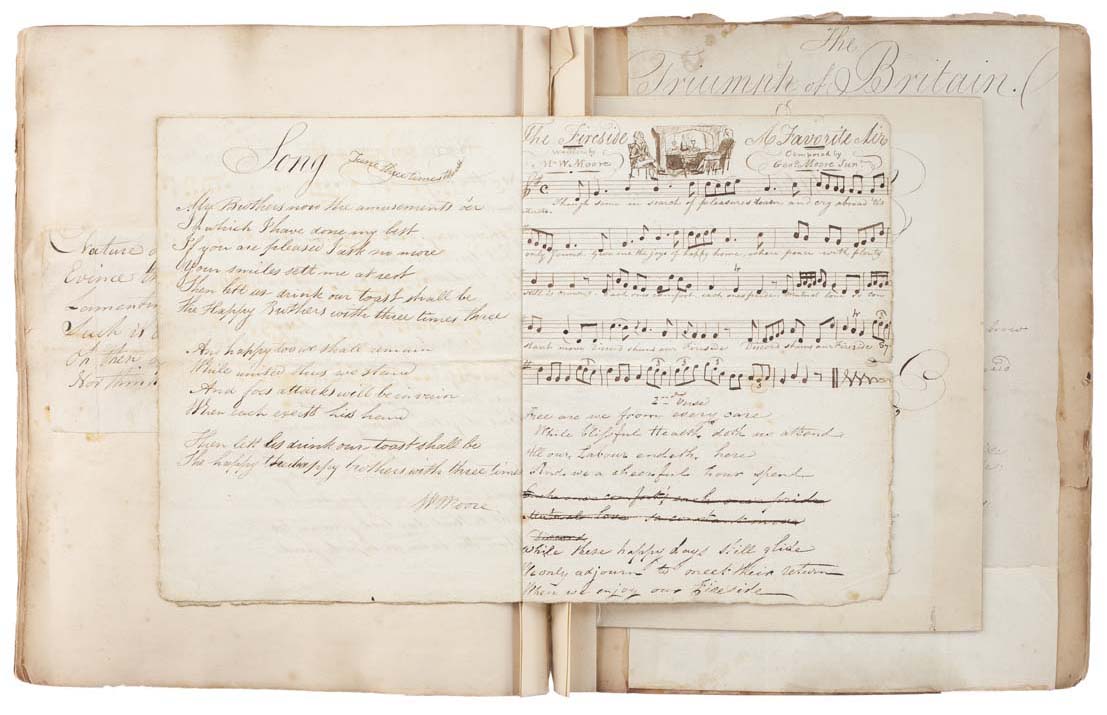 Song
Tune three times three
My Brothers now the amusements o'er
In which I have done my best
If you are pleased I ask no more
Your smiles sett me at rest
Then lett us drink our toast shall be
the Happy Brothers with three times three
And happy too we shall remain
While united thus we stand
And foes attacks will be in vain
When each exerts his hand
Then lett us drink our toast shall be
The happy brothers with three times
W Moore
Nature
Evince th
Lamentin
Such is
Or then
Nor think
The
Triumph of Britain.
The Fireside
Written by
Mr W. Moore
A Favorite Air
Composed by
Geo. Moore Junr.
Though some in search of pleasures roam and cry abroad 'tis
only found. Give me the joys of happy home, where peace with plenty
still is crown'd Each ones comfort each ones pride Mutual love so con
stant move discord shuns our Fireside Discord shuns our Fireside
2nd Verse
Free are we from every care
While blissful Health doth us attend
till our Labour endeth here
And we a cheerful hour spend
Each ones comfort, each ones pride
Mutual love so constant move
Discord
While these happy days still glide
We only adjourn to meet their return
When we enjoy our Fireside